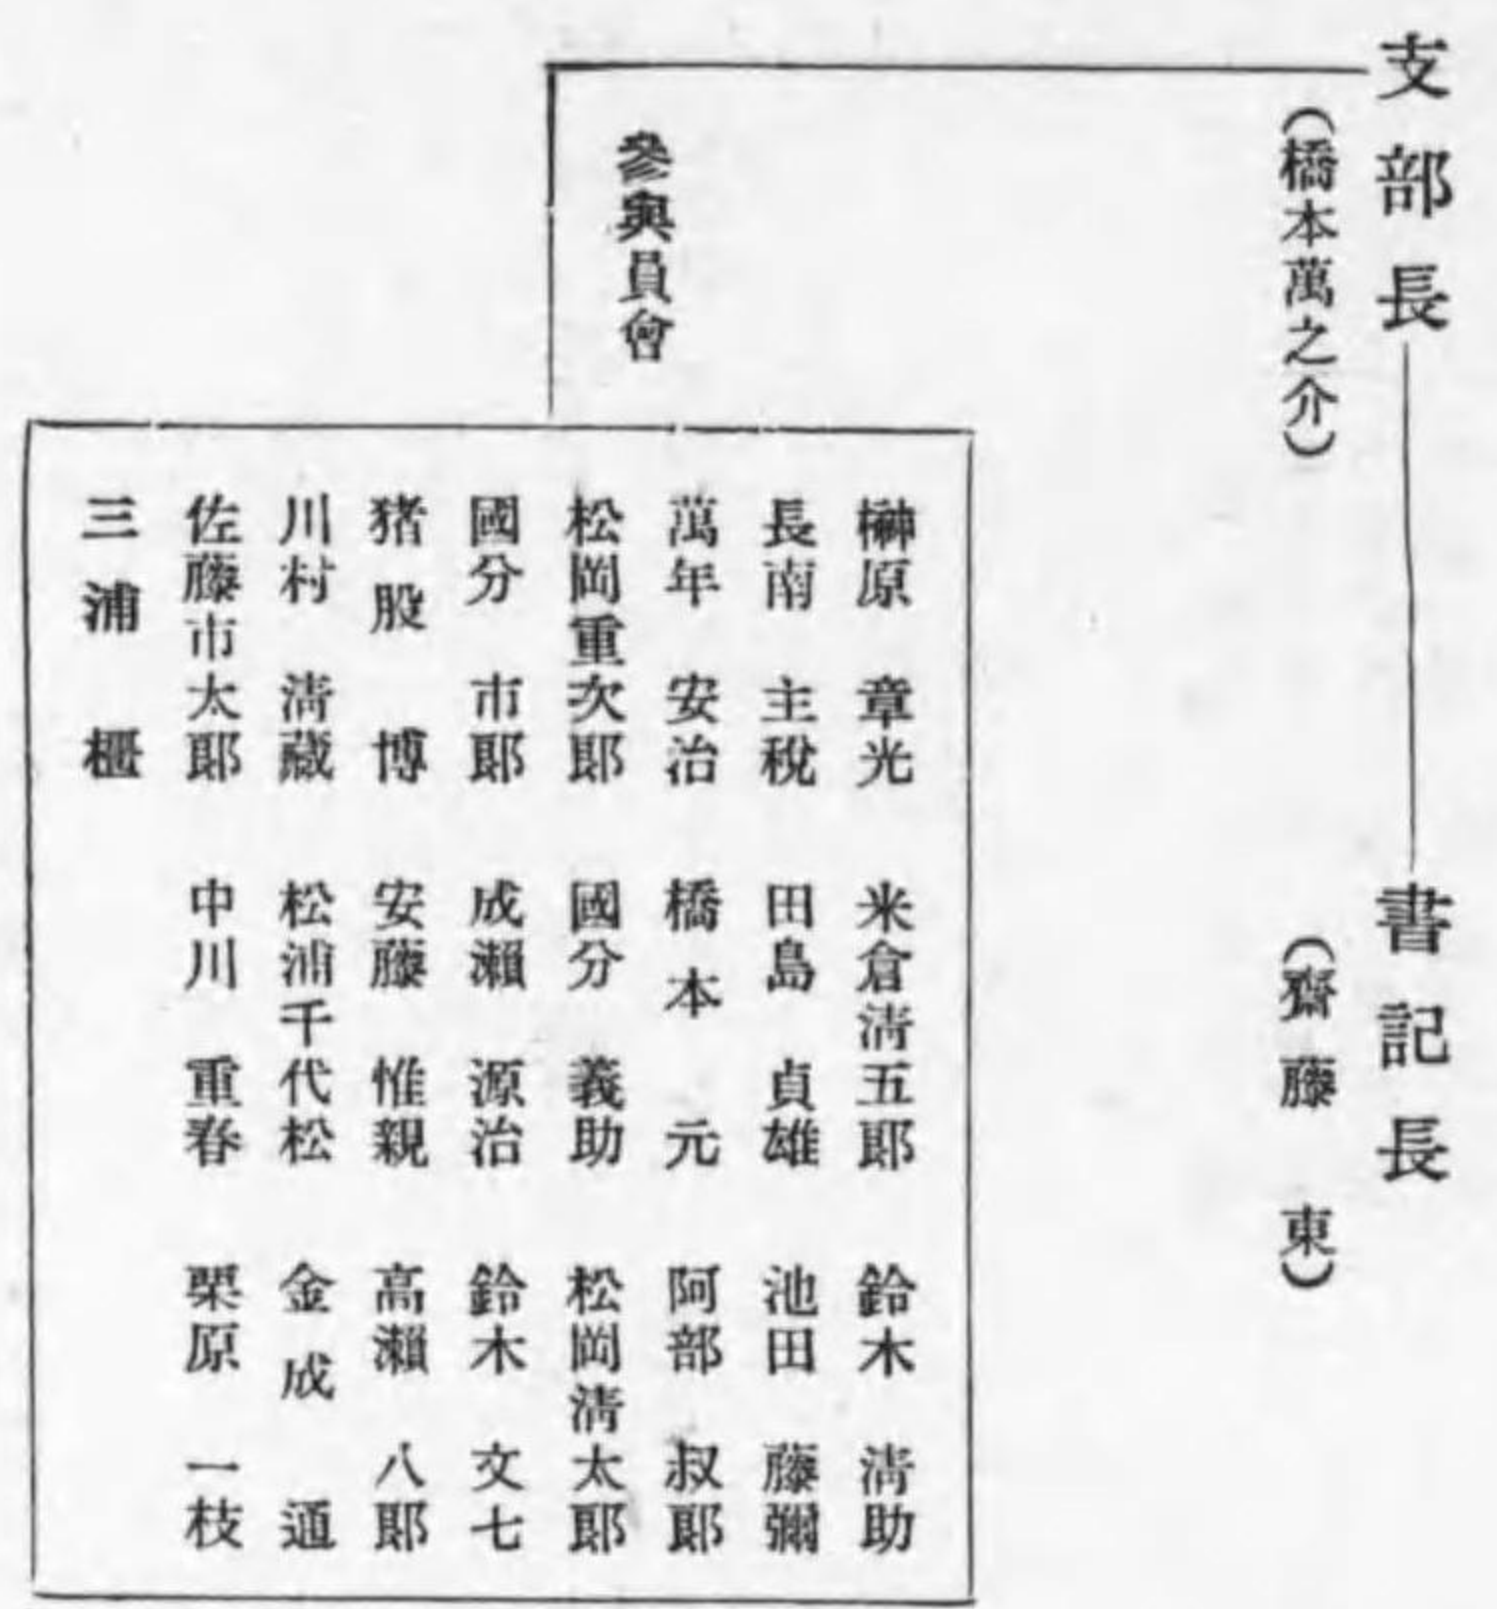 支部長
(橋本萬之介)
書記長
(齋藤 東)
參與員會
榊原 章光 米倉淸五郎 鈴木 淸助
長南 主稅 田島 貞雄 池田 藤彌
萬年 安治 橋本 元 阿部 叔郎
松岡重次郎 國分 義助 松岡淸太郎
國分 市郎 成瀨 源治 鈴木 文七
猪股 博 安藤 惟親 高瀨 八郎
川村 淸藏 松浦千代松 金成 通
佐藤市太郎 中川 重春 栗原 一枝
三浦